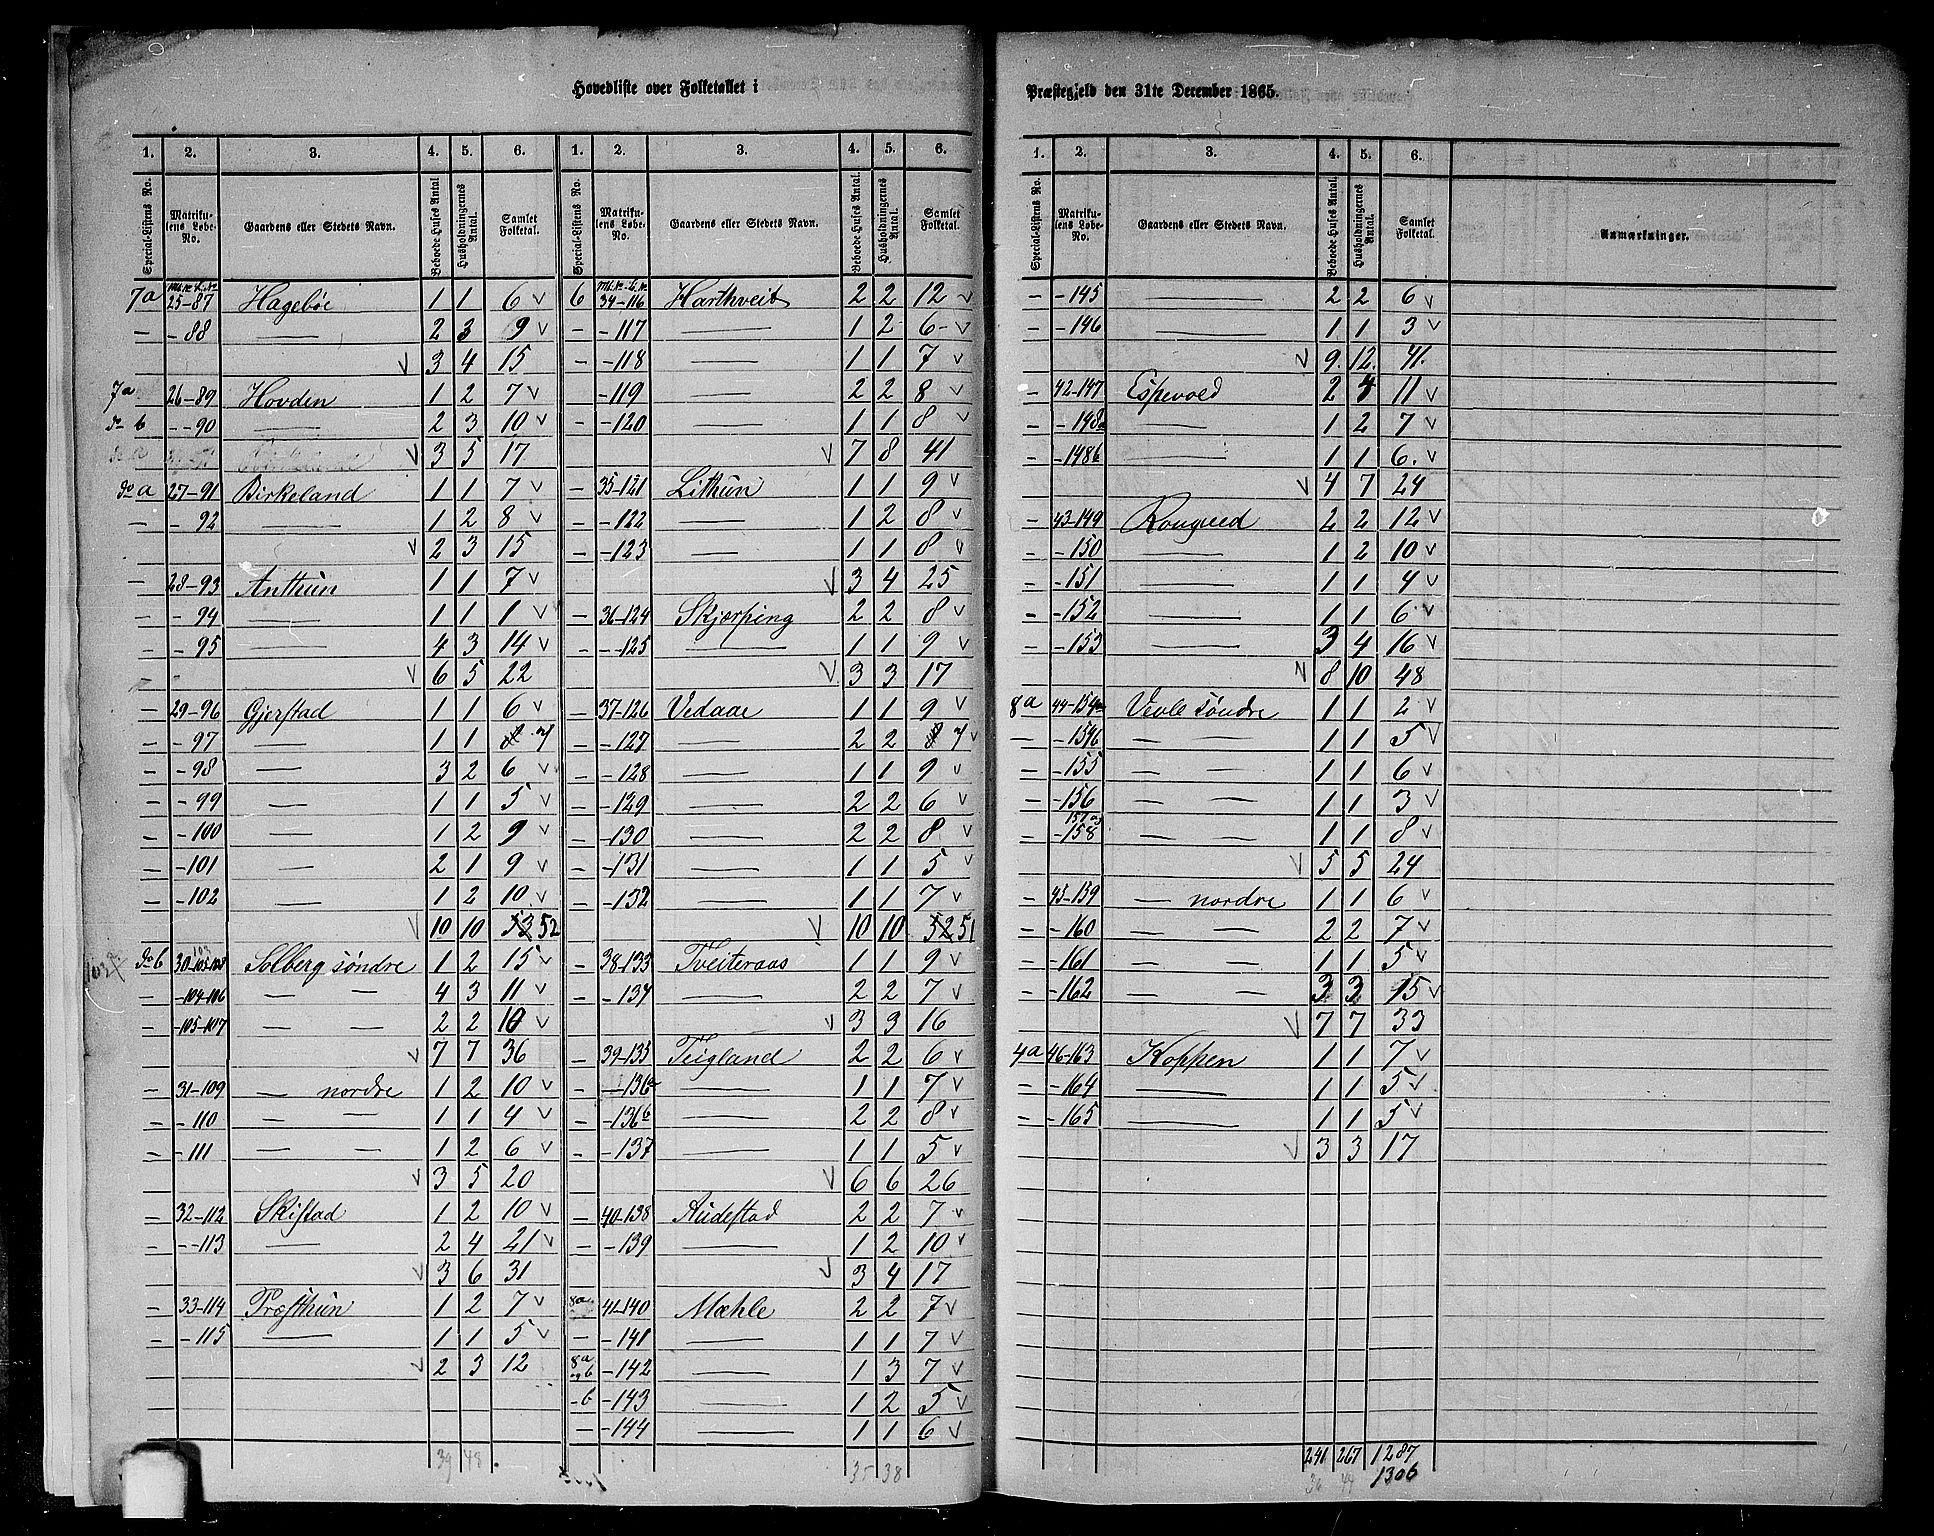 Hovedliste over Folketallet i
Præstegjeld den 31te December 1865.
1. 2. 3. 4. 5. 6. 1. 2. 3. 4. 5. 6.
Special-Listens No. Matrikulens Løbe-No. Gaardens eller Stedets Navn. Beboede Huses Antal Husholdningernes Antal. Samlet Folketal. Special-Listens No. Matrikulens Løbe-No. Gaardens eller Stedets Navn. Beboede Huses Antal. Husholdningernes Antal. Samlet Folketal.
7a 25-87 Hagebøe 1 1 6 v
— - 88 —— 2 3 9 v
v 3 4 15
7a 26-89 Hovden 1 2 7 v
do b - -90 —— 2 3 10 v
v 3 5 17
do a 27-91 Birkeland 1 1 7 v
— - 92 —— 1 2 8 v
v 2 3 15
— 28-93 Anthun 1 1 7 v
— - 94 —— 1 1 1 v
— - 95 —— 4 3 14 v
v 6 5 22
— 29-96 Gjerstad 1 1 6 v
— - 97 —— 1 1 7
— - 98 —— 3 2 6 v
— - 99 —— 1 1 5 v
— - 100 —— 1 2 9 v
— - 101 —— 2 1 9 v
— - 102 —— 1 2 10 v
v 10 10 53 52
do b 30- Solberg søndre 1 2 15 v
— -104-106 — — 4 3 11 v
— -105-107 — — 2 2 10 v
v 7 7 36
— 31-109 — nordre 1 2 10 v
— - 110 — — 1 1 4 v
— - 111 — — 1 2 6 v
v 3 5 20
— 32-112 Skistad 1 2 10 v
— - -113 —— 2 4 21 v
v 3 6 31
— 33-114 Træsthun 1 2 7 v
— - 115 —— 1 1 5 v
v 2 3 12
39 48
6 34-116 Harthveit 2 2 12 v
— -117 —— 1 2 6 v
— -118 —— 1 1 7 v
-119 —— 2 2 8 v
— -120 —— 1 1 8 v
v 7 8 41
— 35-121 Lithun 1 1 9 v
— -122 —— 1 2 8 v
— -123 —— 1 1 8 v
v 3 4 25
— 36-124 Skjerping 2 2 8 v
— - -125 —— 1 1 9 v
v 3 3 17
— 37-126 Vedaae 1 1 9 v
— -127 —— 2 2 7 v
— -128 —— 1 1 9 v
— -129 —— 2 2 6 v
— -130 —— 2 2 8 v
— -131 —— 1 1 5 v
— -132 —— 1 1 7 v
v 10 10 52 51
— 38-133 Tveiteraas 1 1 9 v
— -134 —— 2 2 7 v
v 3 3 16
— 39-135 Teigland 2 2 6 v
— -136a —— 1 1 7 v
— -136b —— 2 2 8 v
— -137 —— 1 1 5 v
v 6 6 26
— 40-138 Audestad 2 2 7 v
— -139 —— 1 2 10 v
v 3 4 17
8a 41-140 Mæhle 2 2 7 v
— -141 —— 1 1 7 v
8a og b -142 —— 1 3 7 v
-b -143 —— 1 2 5 v
— -144 —— 1 1 6 v
35 38
1. 2. 3. 4. 5. 6.
Special-Listens No. Matrikulens Løbe-No. Gaardens eller Stedets Navn. Beboede Huses Antal. Husholdningernes Antal. Samlet Folketal. Anmærkninger.
— -145 —— 2 2 6 v
— -146 —— 1 1 3 v
v 9. 12. 41.
— 42-147 Espevold 2 4 11 v
— -148a —— 1 2 7 v
— -148b —— 1 1 6. v
v 4 7 24
— 43-149 Rongved 2 2 12 v
— -150 —— 1 2 10 v
— -151 —— 1 1 4 v
— -152 —— 1 1 6 v
— -153 —— 3 4 16 v
v 8 10 48
8a 44-154a Vevle søndre 1 1 2 v
— -154b — — 1 1 5 v
— -155 — — 1 1 6 v
— -156 — — 1 1 3 v
— 157 og -158 — — 1 1 8 v
v 5 5 24
— 45-159 — nordre 1 1 6 v
— -160 — — 2 2 7 v
— -161 — — 1 1 5 v
— -162 — — 3 3 15 v
v 7 7 33
4a 46-163 Koppen 1 1 7 v
— -164 —— 1 1 5 v
— -165 —— 1 1 5 v
v 3 3 17
241 267 1287
36 44 1306